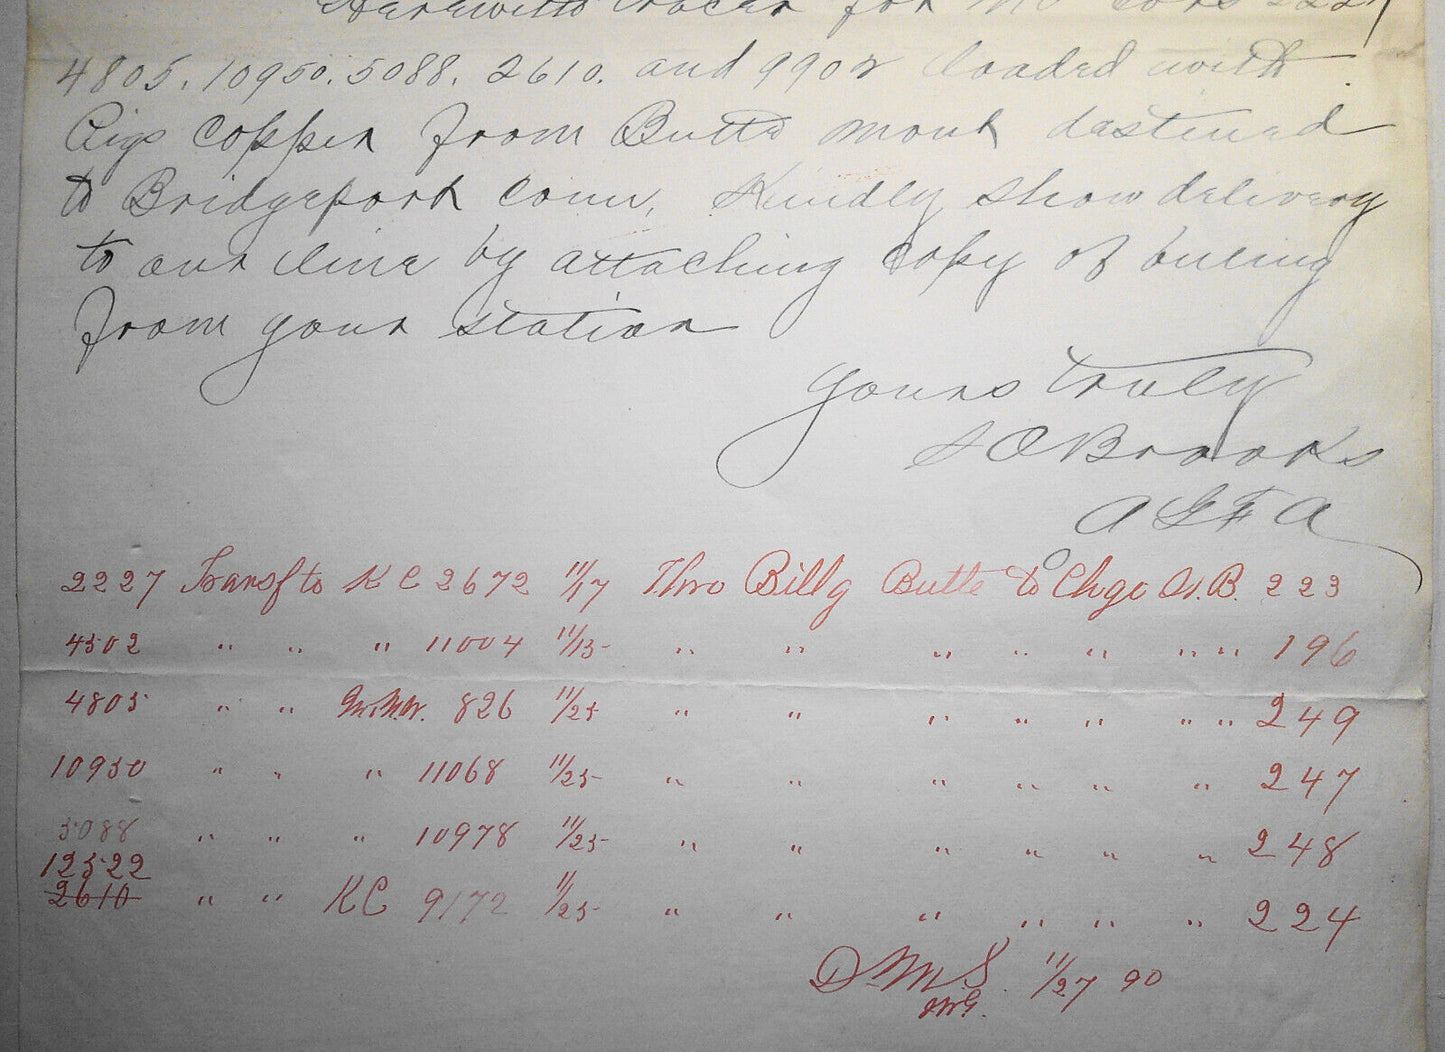 Herewith tracer for MP Cars 2227
4805. 10950. 5088. 2610. and 9902 loaded with
Pigs Copper from Butte Mont destined
to Bridgeport Conn. Kindly show delivery
to our line by attaching copy of billing
from your station
Yours truly
S C Brooks
A G F A
2227 Transf to K C 2672 11/17 Thro Billg Butte to Chgo W.B. 223
4502 " " " 11004 11/15 " " " " " " " 196
4805 " " M.N.W. 826 11/25 " " " " " " " 249
10950 " " " 11068 11/25 " " " " " " 247
5088 " " " 10978 11/25 " " " " " " 248
12522
2610 " " KC 9172 11/25 " " " " " " 224
D.M.S. 11/27 90